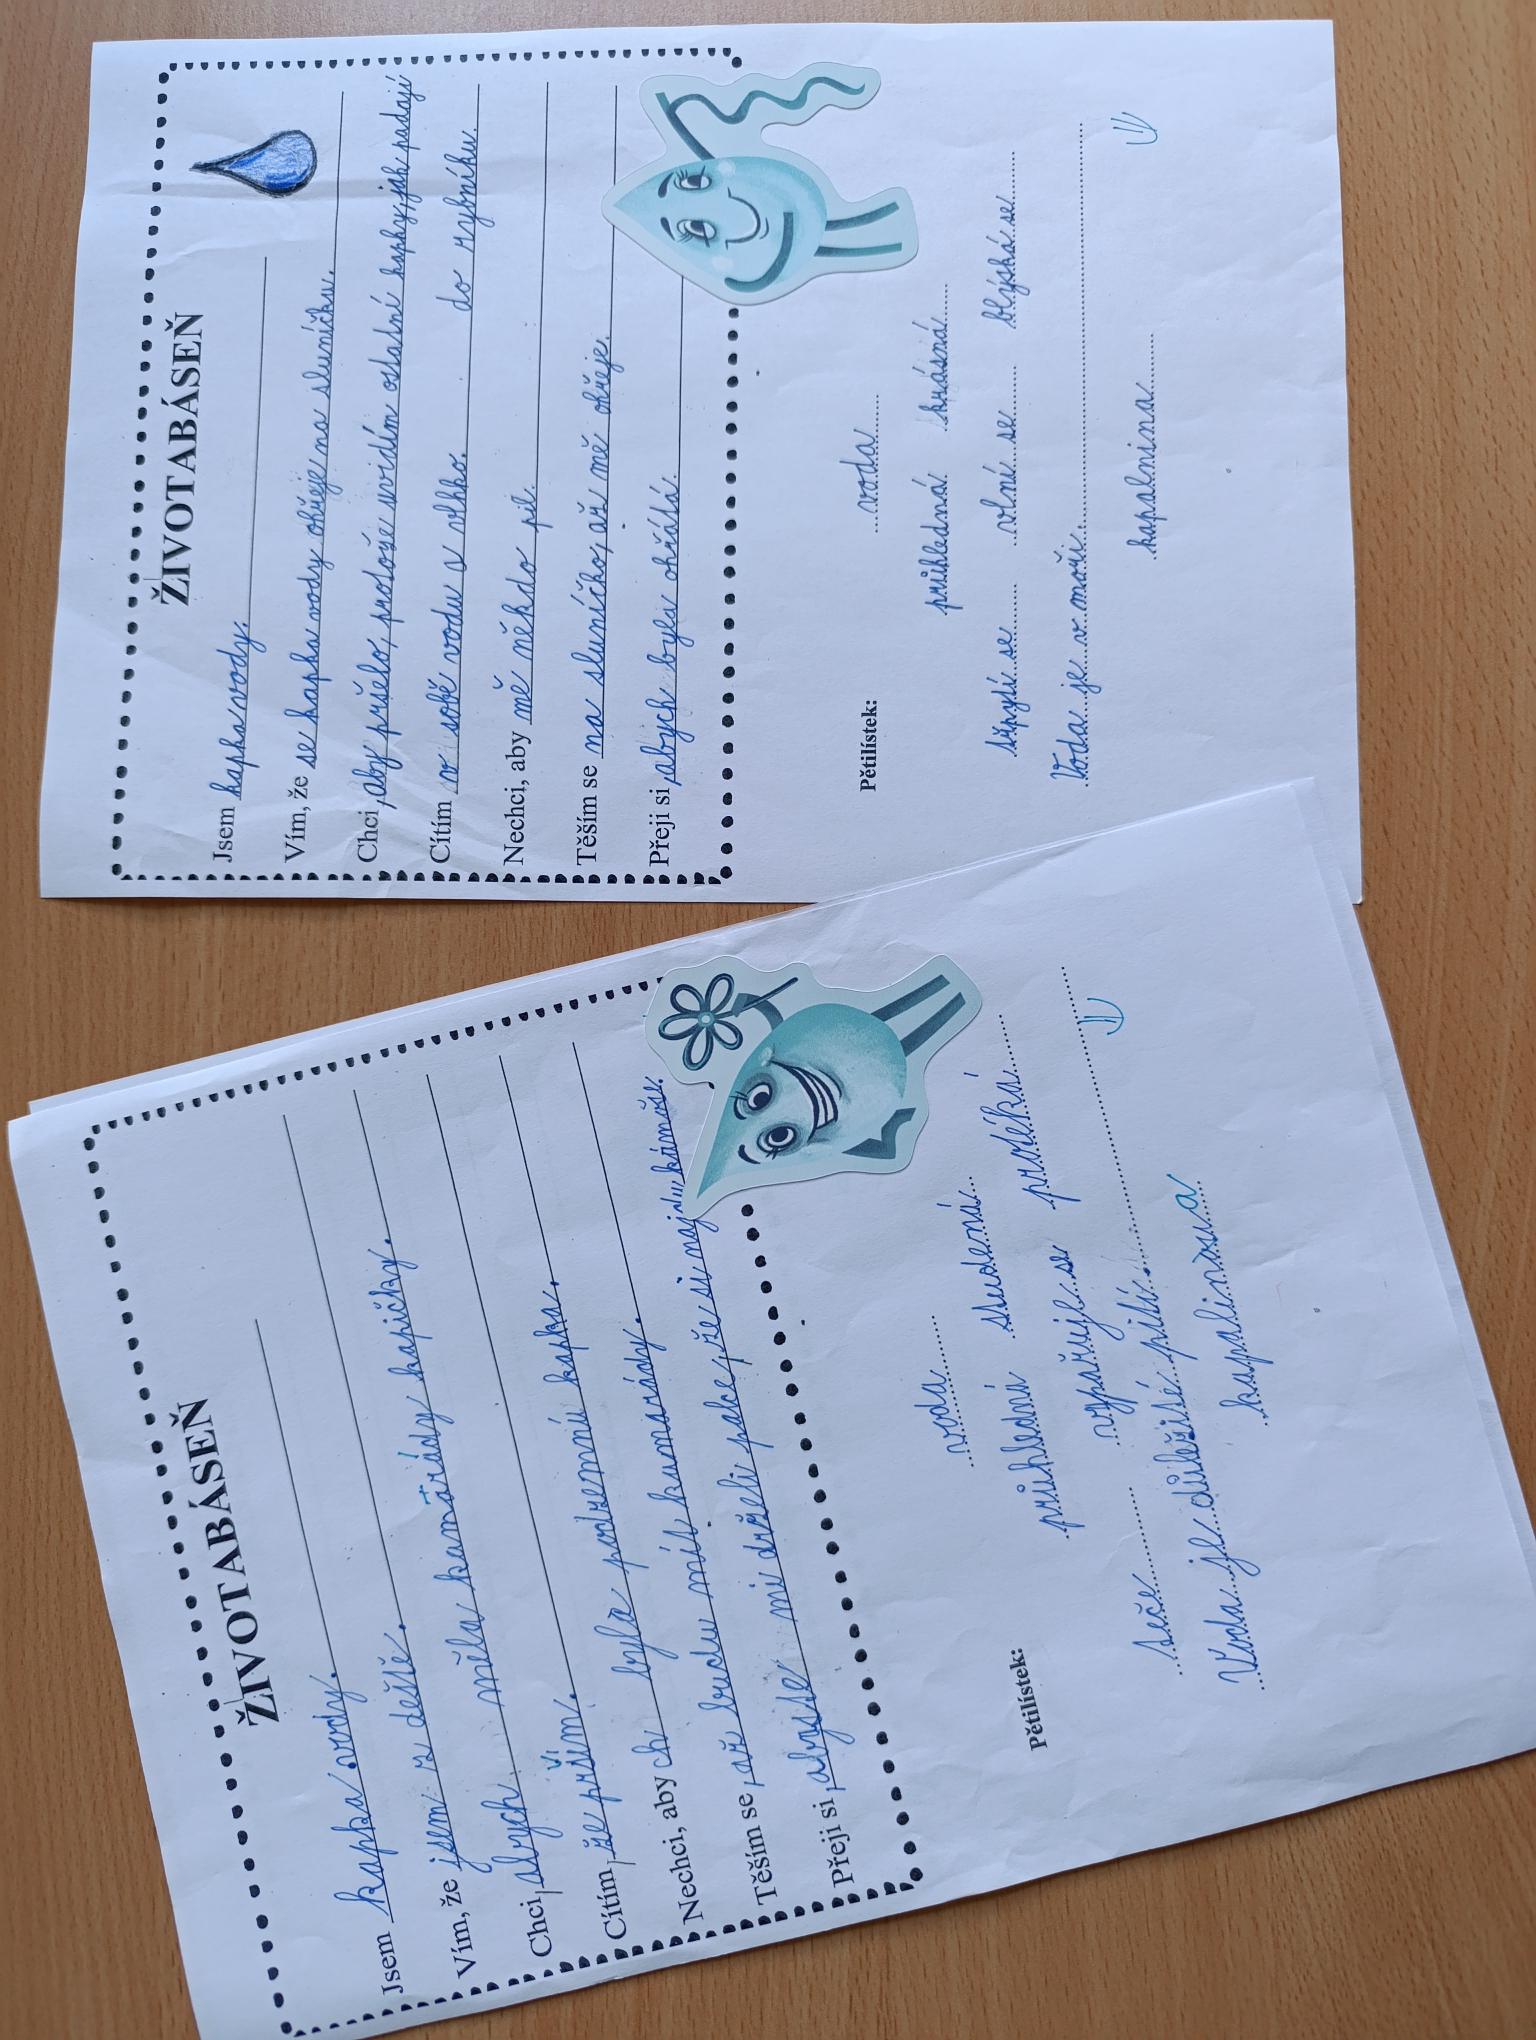 ŽIVOTABÁSEŇ
Jsem kapka vody.
Vím, že jsem z deště.
Chci, abych měla kamarády kapičky.
Cítím, že prším.
Nechci, abych byla podzemní kapka.
Těším se, až budu mít kamarády.
Přeji si, abyste mi drželi palce, že si najdu kámoše.
Pětilístek:
voda
průhledná studená
teče vypařuje se protéká
Voda je důležité pití.
kapalinová
ŽIVOTABÁSEŇ
Jsem kapka vody.
Vím, že se kapka vody ohřeje na sluníčku.
Chci, aby pršelo, protože uvidím ostatní kapky, jak padají
do rybníku.
Cítím v sobě vodu a vlhko.
Nechci, aby mě někdo pil.
Těším se na sluníčko, až mě ohřeje.
Přeji si, abych byla ohřátá.
Pětilístek:
voda
průhledná krásná
třpytí se vlní se blýská se
Voda je v moři.
kapalnina